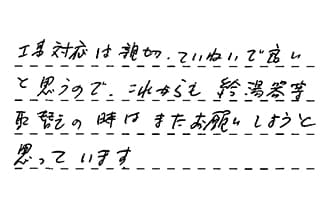 工事対応は親切、ていねいで良い
と思うので、これからも給湯器等
取替えの時はまたお願いしようと
思っています